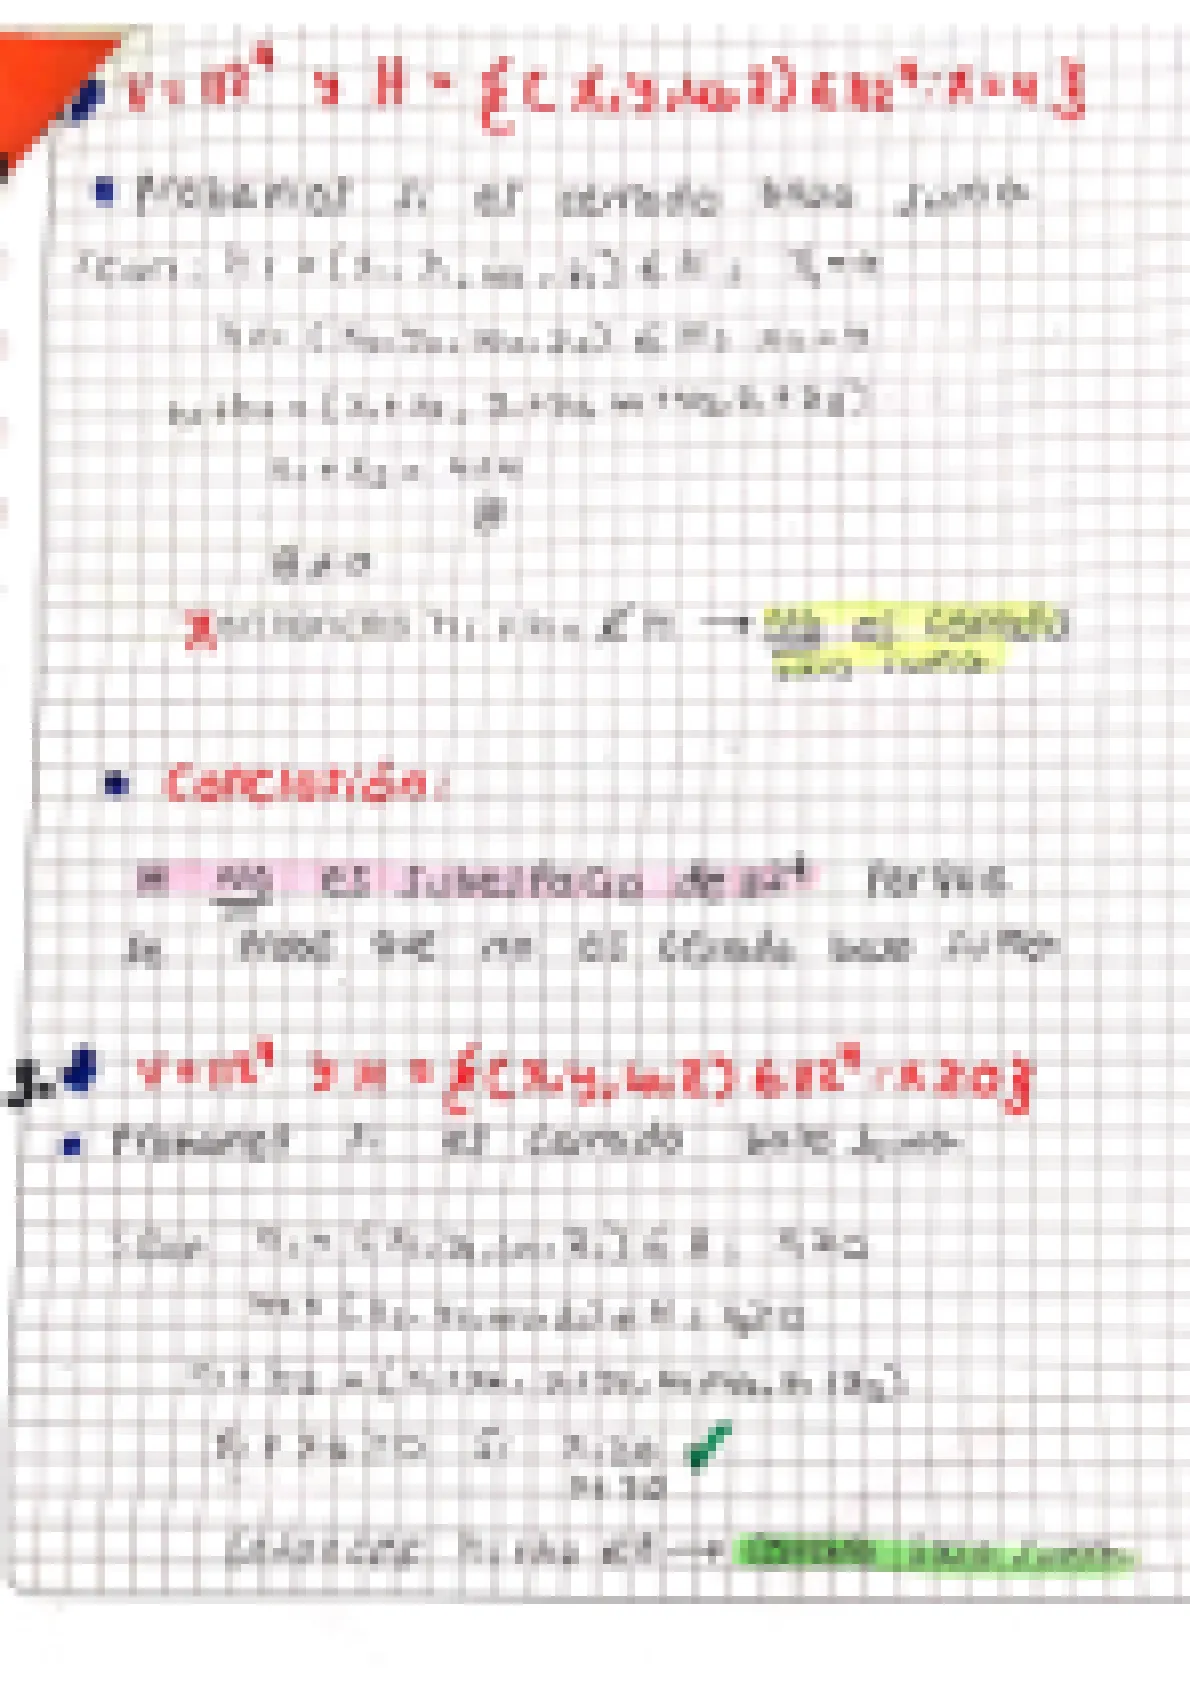 V = ℝ⁴ y H = {(x, y, w, z) ∈ ℝ⁴: x = 4}
• Probemos si es cerrado bajo suma
Sean: h₁ = (x₁, y₁, w₁, z₁) ∈ H;
h₂ = (x₂, y₂, w₂, z₂) ∈ H;
h₁ + h₂ = (x₁ + x₂, y₁ + y₂, w₁ + w₂, z₁ + z₂)
x₁ + x₂ = 4+4
8
8 ≠ 4
X entonces h₁ + h₂ ∉ H → No es cerrado
bajo suma
• Conclusión:
H No es subespacio de ℝ⁴ porque
se probó que no es cerrado bajo suma
V = ℝ⁴ y H = {(x, y, w, z) ∈ ℝ⁴: x ≥ 0}
• Probemos si es cerrado bajo suma
Sean h₁ = (x₁, y₁, w₁, z₁) ∈ H; x₁ ≥ 0
h₂ = (x₂, y₂, w₂, z₂) ∈ H; x₂ ≥ 0
h₁ + h₂ = (x₁ + x₂, y₁ + y₂, w₁ + w₂, z₁ + z₂)
x₁ + x₂ ≥ 0 si x₁ ≥ 0 ✓
x₂ ≥ 0
Entonces h₁ + h₂ ∈ H → cerrado bajo suma